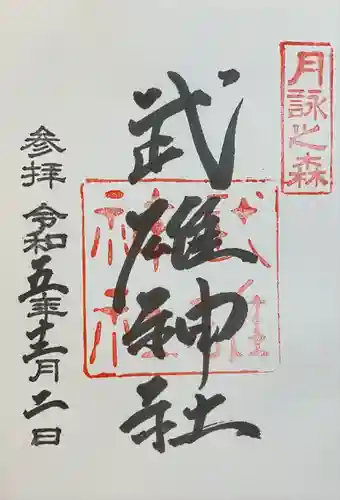 月詠之森
武雄神社
武雄神社
参拝 令和五年十二月二日